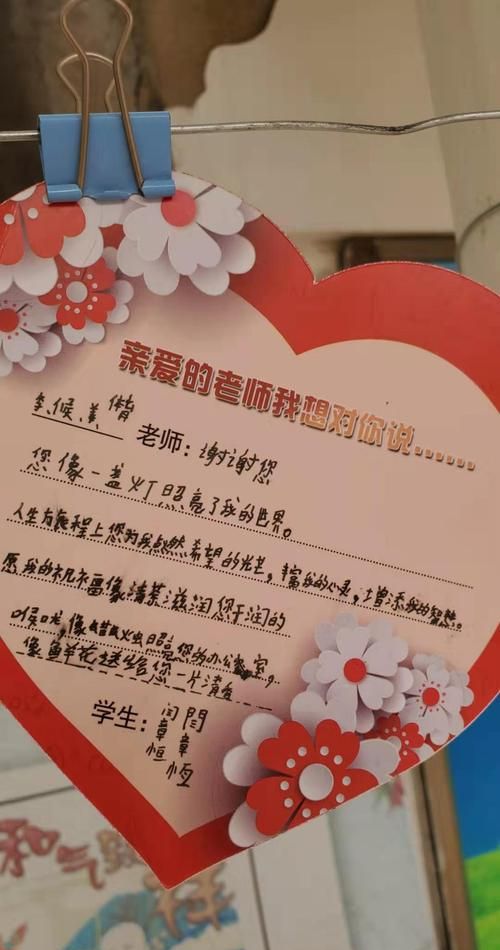 亲爱的老师我想对你说……
李候姜 偕 老师：谢谢您
您像一盏灯照亮了我的世界。
人生方旅程上您为我点燃希望的光芒，丰富我的心灵，增添我的智慧。
愿我的祝福像清茶滋润您干润的
喉咙，像蜡火照亮您的办公室，
像鲜花送给您一片清香
学生：闫 闫
章 章
恒 恒
和气
祥